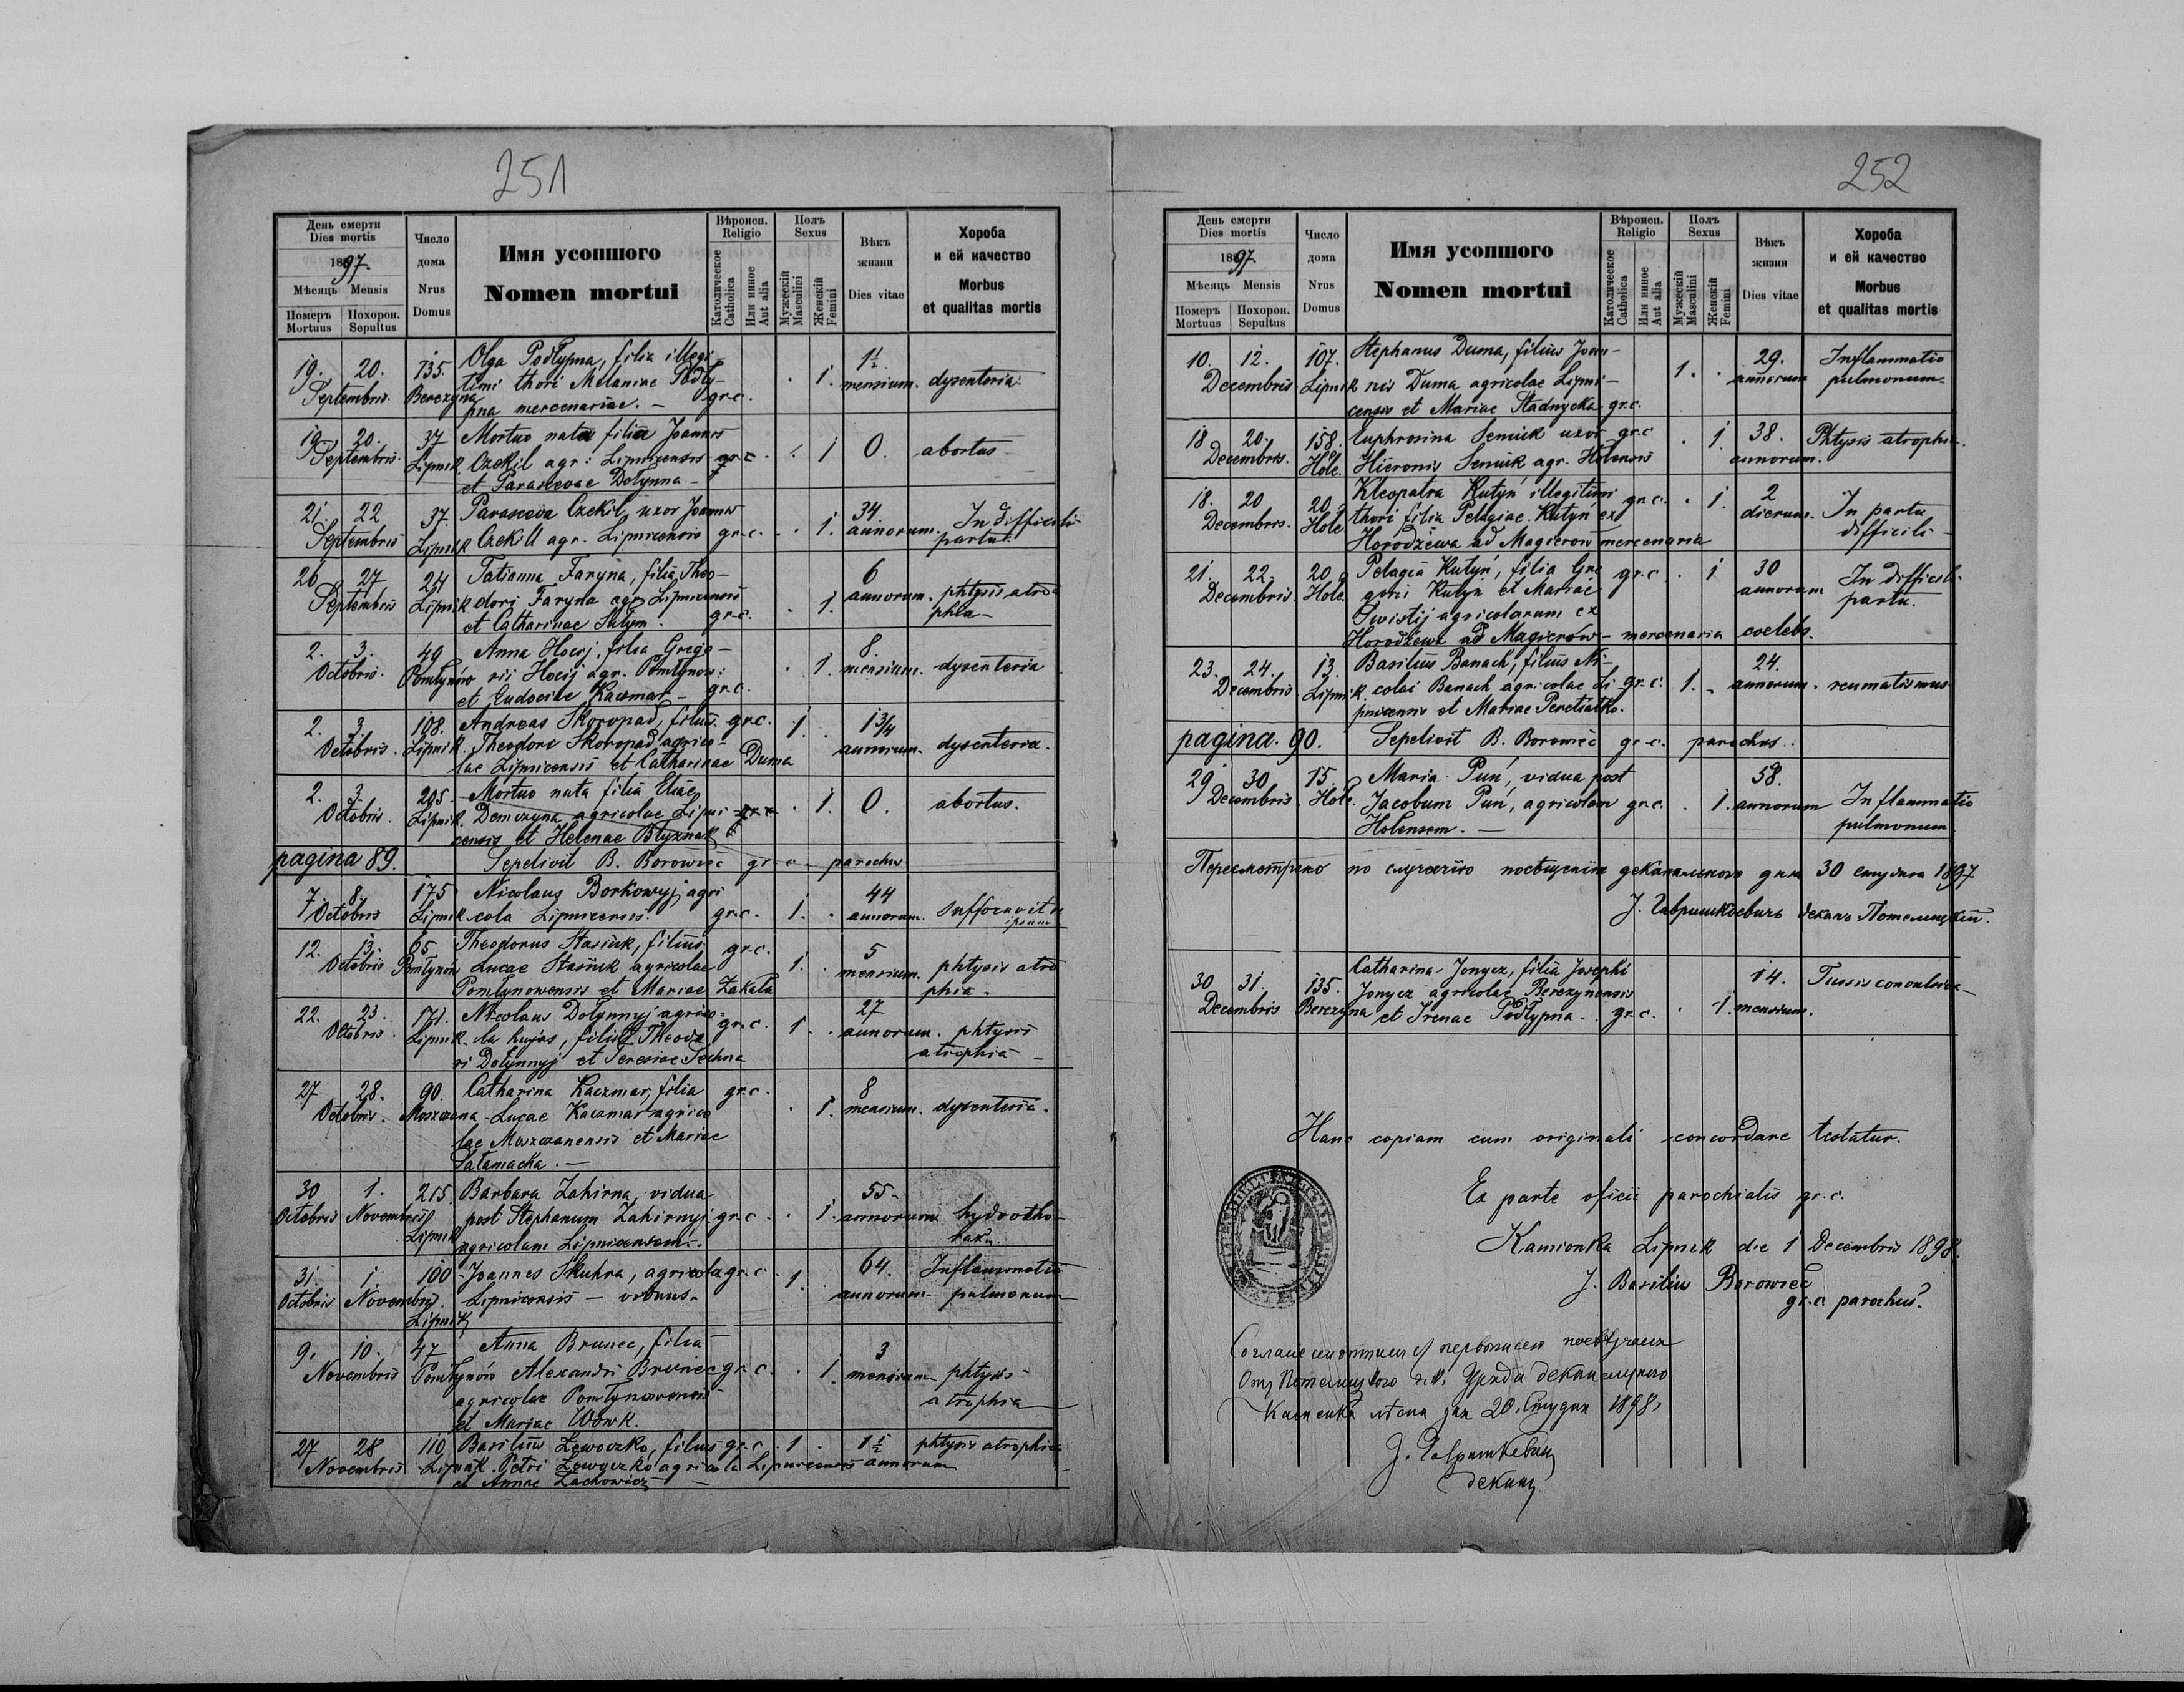 251
День смерти
Dies mortis
1897.
Мѣсяць Mensis
Померъ Mortuus
Похорон. Sepultus
Число дома
Nrus Domus
Имя усопшого
Nomen mortui
Вѣроисп.
Religio
Католическое Catholica
Или инное Aut alia
Полъ
Sexus
Мужескій Masculini
Женскій Femini
Вѣкъ жизни
Dies vitae
Хороба
и ей качество
Morbus
et qualitas mortis
19. 20. 135. Olga Podłypna, filia illegi-
Septembris. Berezyna timi thori Melaniae Podły- . 1. 1½ mensium. dysenteria.
pna mercenariae. — gr.c.
19. 20. 37 Mortuo nata filia Joannis
Septembris. Lipnik. Czekil agr: Lipnicensis gr.c. . 1 0. abortus
et Parascevae Dołynna —
21. 22 37. Parasceva Czekil, uxor Joannis 34 In difficili
Septembris Lipnik Czekill agr. Lipnicensis gr.c. . 1. annorum. partu.
26 27 24 Tatianna Faryna, filia Theo- 6
Septembris Lipnik dori Faryna agr. Lipnicensis . 1. annorum. phtysis atro
et Catharinae Sałym. gr.c. phia —
2. 3. 49 Anna Hocij, filia Grego- 8.
Octobris. Pomłynów rii Hocij agr. Pomłynow: . 1. mensium. dysenteria
et Eudociae Kaczmar — gr.c.
2. 3. 108. Andreas Skoropad, filius gr.c. 1. . 1¾
Octobris. Lipnik. Theodori Skoropad, agrico- annorum. dysenteria.
lae Lipnicensis et Catharinae Duma
2. 3. 205. Mortuo nata filia Eliae
Octobris. Lipnik. Demczyna agricolae Lipni- . 1. 0. abortus.
censis et Helenae Błyznak
pagina 89. Sepelivit B. Borowieć gr.c. parochus
7. 8. 175 Nicolaus Borkowyj, agri 44
Octobris Lipnik cola Lipnicensis. gr.c. 1. . annorum. suffocavit se
ipsum
12. 13. 65 Theodorus Stasiuk, filius gr.c. 5
Octobris Pomłynów Lucae Stasiuk agricolae 1. . mensium. phtysis atro
Pomłynowensis et Mariae Zakała phia —
22. 23. 171. Nicolaus Dołynnyj agrico- 27
Octobris. Lipnik. la hujas, filius Theodo gr.c. 1 . annorum. phtysis
ri Dołynnyj et Teresiae Techna atrophia —
27 28. 90. Catharina Kaczmar, filia gr.c. 8
Octobris. Moszczana Lucae Kaczmar agrico . 1. mensium. dysenteria.
lae Moszczanensis et Mariae
Sałamacka. —
30 1. 215. Barbara Zahirna, vidua 55.
Octobris Novembris Lipnik post Stephanum Zahirnyj gr.c. . 1. annorum hydrotho-
agricolam Lipnicensem. rax.
31. 1. 100 Joannes Skuhra, agricola gr.c. 1. 64. Inflammatio
Octobris Novembris. Lipnicensis — viduus. annorum. pulmonum
Lipnik
9. 10. 47 Anna Brunec, filia 3
Novembris Pomłynów Alexandri Brunec gr.c. . 1. mensium. phtysis
agricolae Pomłynowensis atrophia
et Mariae Wowk.
27 28 110 Basilius Zewoczko, filius gr.c. 1 . 1½ phtysis atrophia
Novembris Lipnik. Petri Zewoczko agricola Lipnicensis annorum
et Annae Zachowicz —
252
День смерти
Dies mortis
1897.
Мѣсяць Mensis
Померъ Mortuus
Похорон. Sepultus
Число дома
Nrus Domus
Имя усопшого
Nomen mortui
Вѣроисп.
Religio
Католическое Catholica
Или инное Aut alia
Полъ
Sexus
Мужескій Masculini
Женскій Femini
Вѣкъ жизни
Dies vitae
Хороба
и ей качество
Morbus
et qualitas mortis
10. 12. 107. Stephanus Duma, filius Joan- 29. Inflammatio
Decembris Lipnik nis Duma agricolae Lipni- 1. . annorum pulmonum.
censis et Mariae Stadnycka gr.c.
18 20. 158. Euphrosina Seniuk uxor gr.c . 1. 38. Phtysis atrophia.
Decembris. Hole. Hieronis Seniuk agr. Holensis annorum.
18. 20 20 Kleopatra Kutyń illegitimi gr.c. . 1. 2 In partu
Decembris. Hole thori filia Pelagiae Kutyń ex dierum. difficili
Horodżewa ad Magierow mercenaria
21. 22. 20 Pelagia Kutyń, filia Gre gr.c. . 1 30 In difficili
Decembris. Hole. gorii Kutyń et Mariae annorum partu.
Iwistij agricolarum ex
Horodżewa ad Magierów — mercenaria coelebs.
23. 24. 13. Basilius Banach, filius Ni- 24.
Decembris Lipnik. colai Banach agricolae Li- gr.c. 1. . annorum. reumatismus
pnicensis et Mariae Peretiatko.
pagina. 90. Sepelivit B. Borowieć gr.c. parochus.
29 30 15. Maria Puń, vidua post 58.
Decembris. Hole. Jacobum Puń, agricolam gr.c. . 1. annorum Inflammatio
Holensem. — pulmonum
Пересмотрено по случаю посѣщенія деканального дня 30 студня 1897
J. Гавришкевичъ деканъ Потелицкій.
30 31. 135. Catharina Jonycz, filia Josephi 14. Tussis convulsiva
Decembris Berezyna Jonycz agricolae Berezynensis . 1. mensium.
et Irenae Podłypna. gr.c.
Hanc copiam cum originali concordare testatur.
Ex parte oficii parochialis gr.c.
Kamionka Lipnik die 1 Decembris 1898.
J. Basilius Borowieć
gr.c. parochus.
Декан